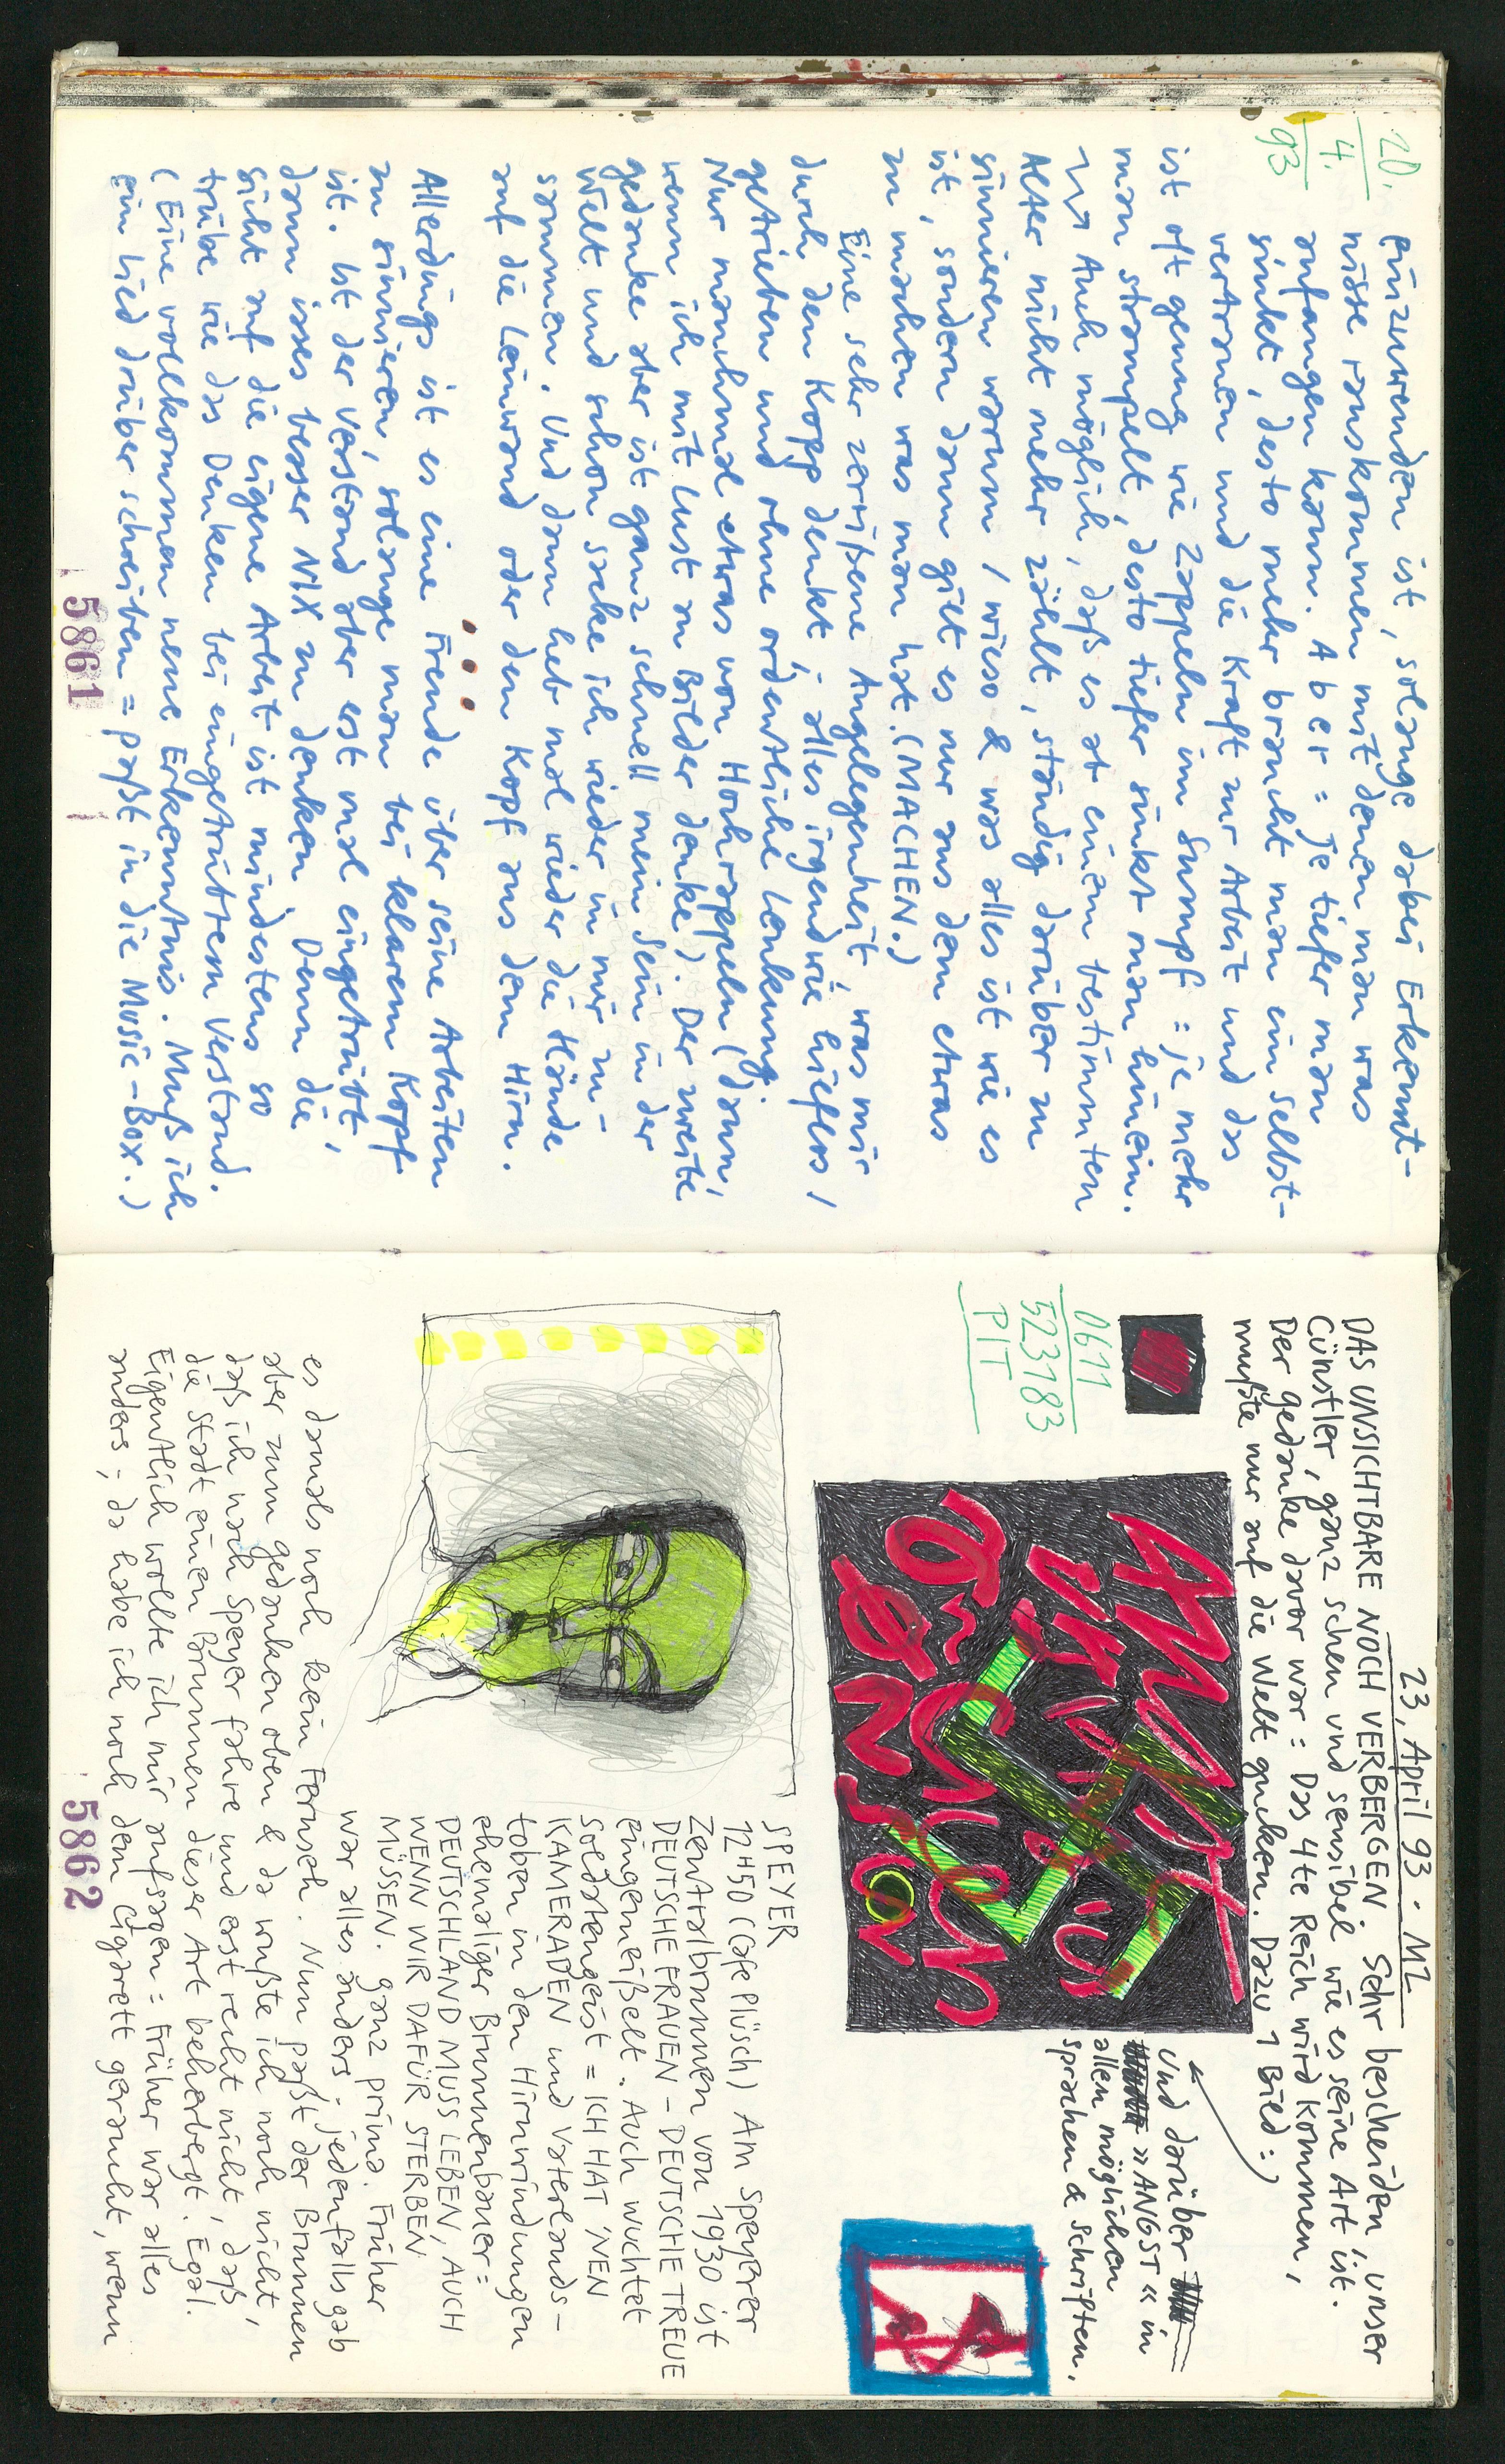 20.
4.
93
einzuwenden ist, solange dabei Erkennt-
nisse rauskommen mit denen man was
anfangen kann. Aber = je tiefer man
sinkt, desto mehr braucht man ein Selbst-
vertrauen und die Kraft zur Arbeit und das
ist oft genug wie Zappeln im Sumpf = je mehr
man strampelt, desto tiefer sinkt man hinein.
Auch möglich, daß es ab einem bestimmten
Alter nicht mehr zählt, ständig darüber zu
sinnieren warum / wieso & was alles ist wie es
ist, sondern dann gilt es nur aus dem etwas
zu machen was man hat. (MACHEN.)
Eine sehr zerrißene Angelegenheit, was mir
durch den Kopp denkt; alles irgendwie hilflos /
getrieben und ohne ordentliche Lenkung.
Nur manchmal etwas von Hochrappeln (dann,
wenn ich mit Lust an Bilder denke). Der zweite
gedanke aber ist ganz schnell mein Sein in der
Welt und schon sacke ich wieder in mir zu-
sammen. Und dann heb mal wieder die Hände
auf die Leinwand oder den Kopf aus dem Hirn.
Allerdings ist es eine Freude über seine Arbeiten
zu sinnieren, solange man bei klarem Kopf
ist. Ist der Verstand aber erst mal eingetrübt,
dann isses besser NIX zu denken. Denn die
sicht auf die eigene Arbeit ist mindestens so
trübe wie das Denken bei eingetrübtem Verstand.
(Eine vollkommen neue Erkenntnis. Muß ich
ein Lied drüber schreiben = paßt in die Music-Box.)
5861
23. April 93 · MZ
DAS UNSICHTBARE NOCH VERBERGEN. Sehr bescheiden, unser
Cünstler, ganz scheu und sensibel wie es seine Art ist.
Der gedanke davor war = Das 4te Reich wird kommen,
mußte nur auf die Welt gucken. Dazu 1 Bild =)
Und darüber
»ANGST« in
allen möglichen
sprachen & schriften.
0611
523183
PIT
ANGST
SPEYER
12H50 (Cafe Plüsch) Am Speyerer
Zentralbrunnen von 1930 ist
DEUTSCHE FRAUEN – DEUTSCHE TREUE
eingemeißelt. Auch wuchtet
Soldatengeist = ICH HAT 'NEN
KAMERADEN und Vaterlands-
toben in den Hirnwindungen
ehemaliger Brunnenbauer =
DEUTSCHLAND MUSS LEBEN, AUCH
WENN WIR DAFÜR STERBEN
MÜSSEN. ganz prima. Früher
war alles anders; jedenfalls gab
es damals noch kein Fernseh. Nun paßt der Brunnen
aber zum gedanken oben & da wußte ich noch nicht,
daß ich nach Speyer fahre und erst recht nicht, daß
die Stadt einen Brunnen dieser Art beherbergt. Egal.
Eigentlich wollte ich mir aufsagen = Früher war alles
anders; da habe ich nach dem Cigarett geraucht, wenn
5862